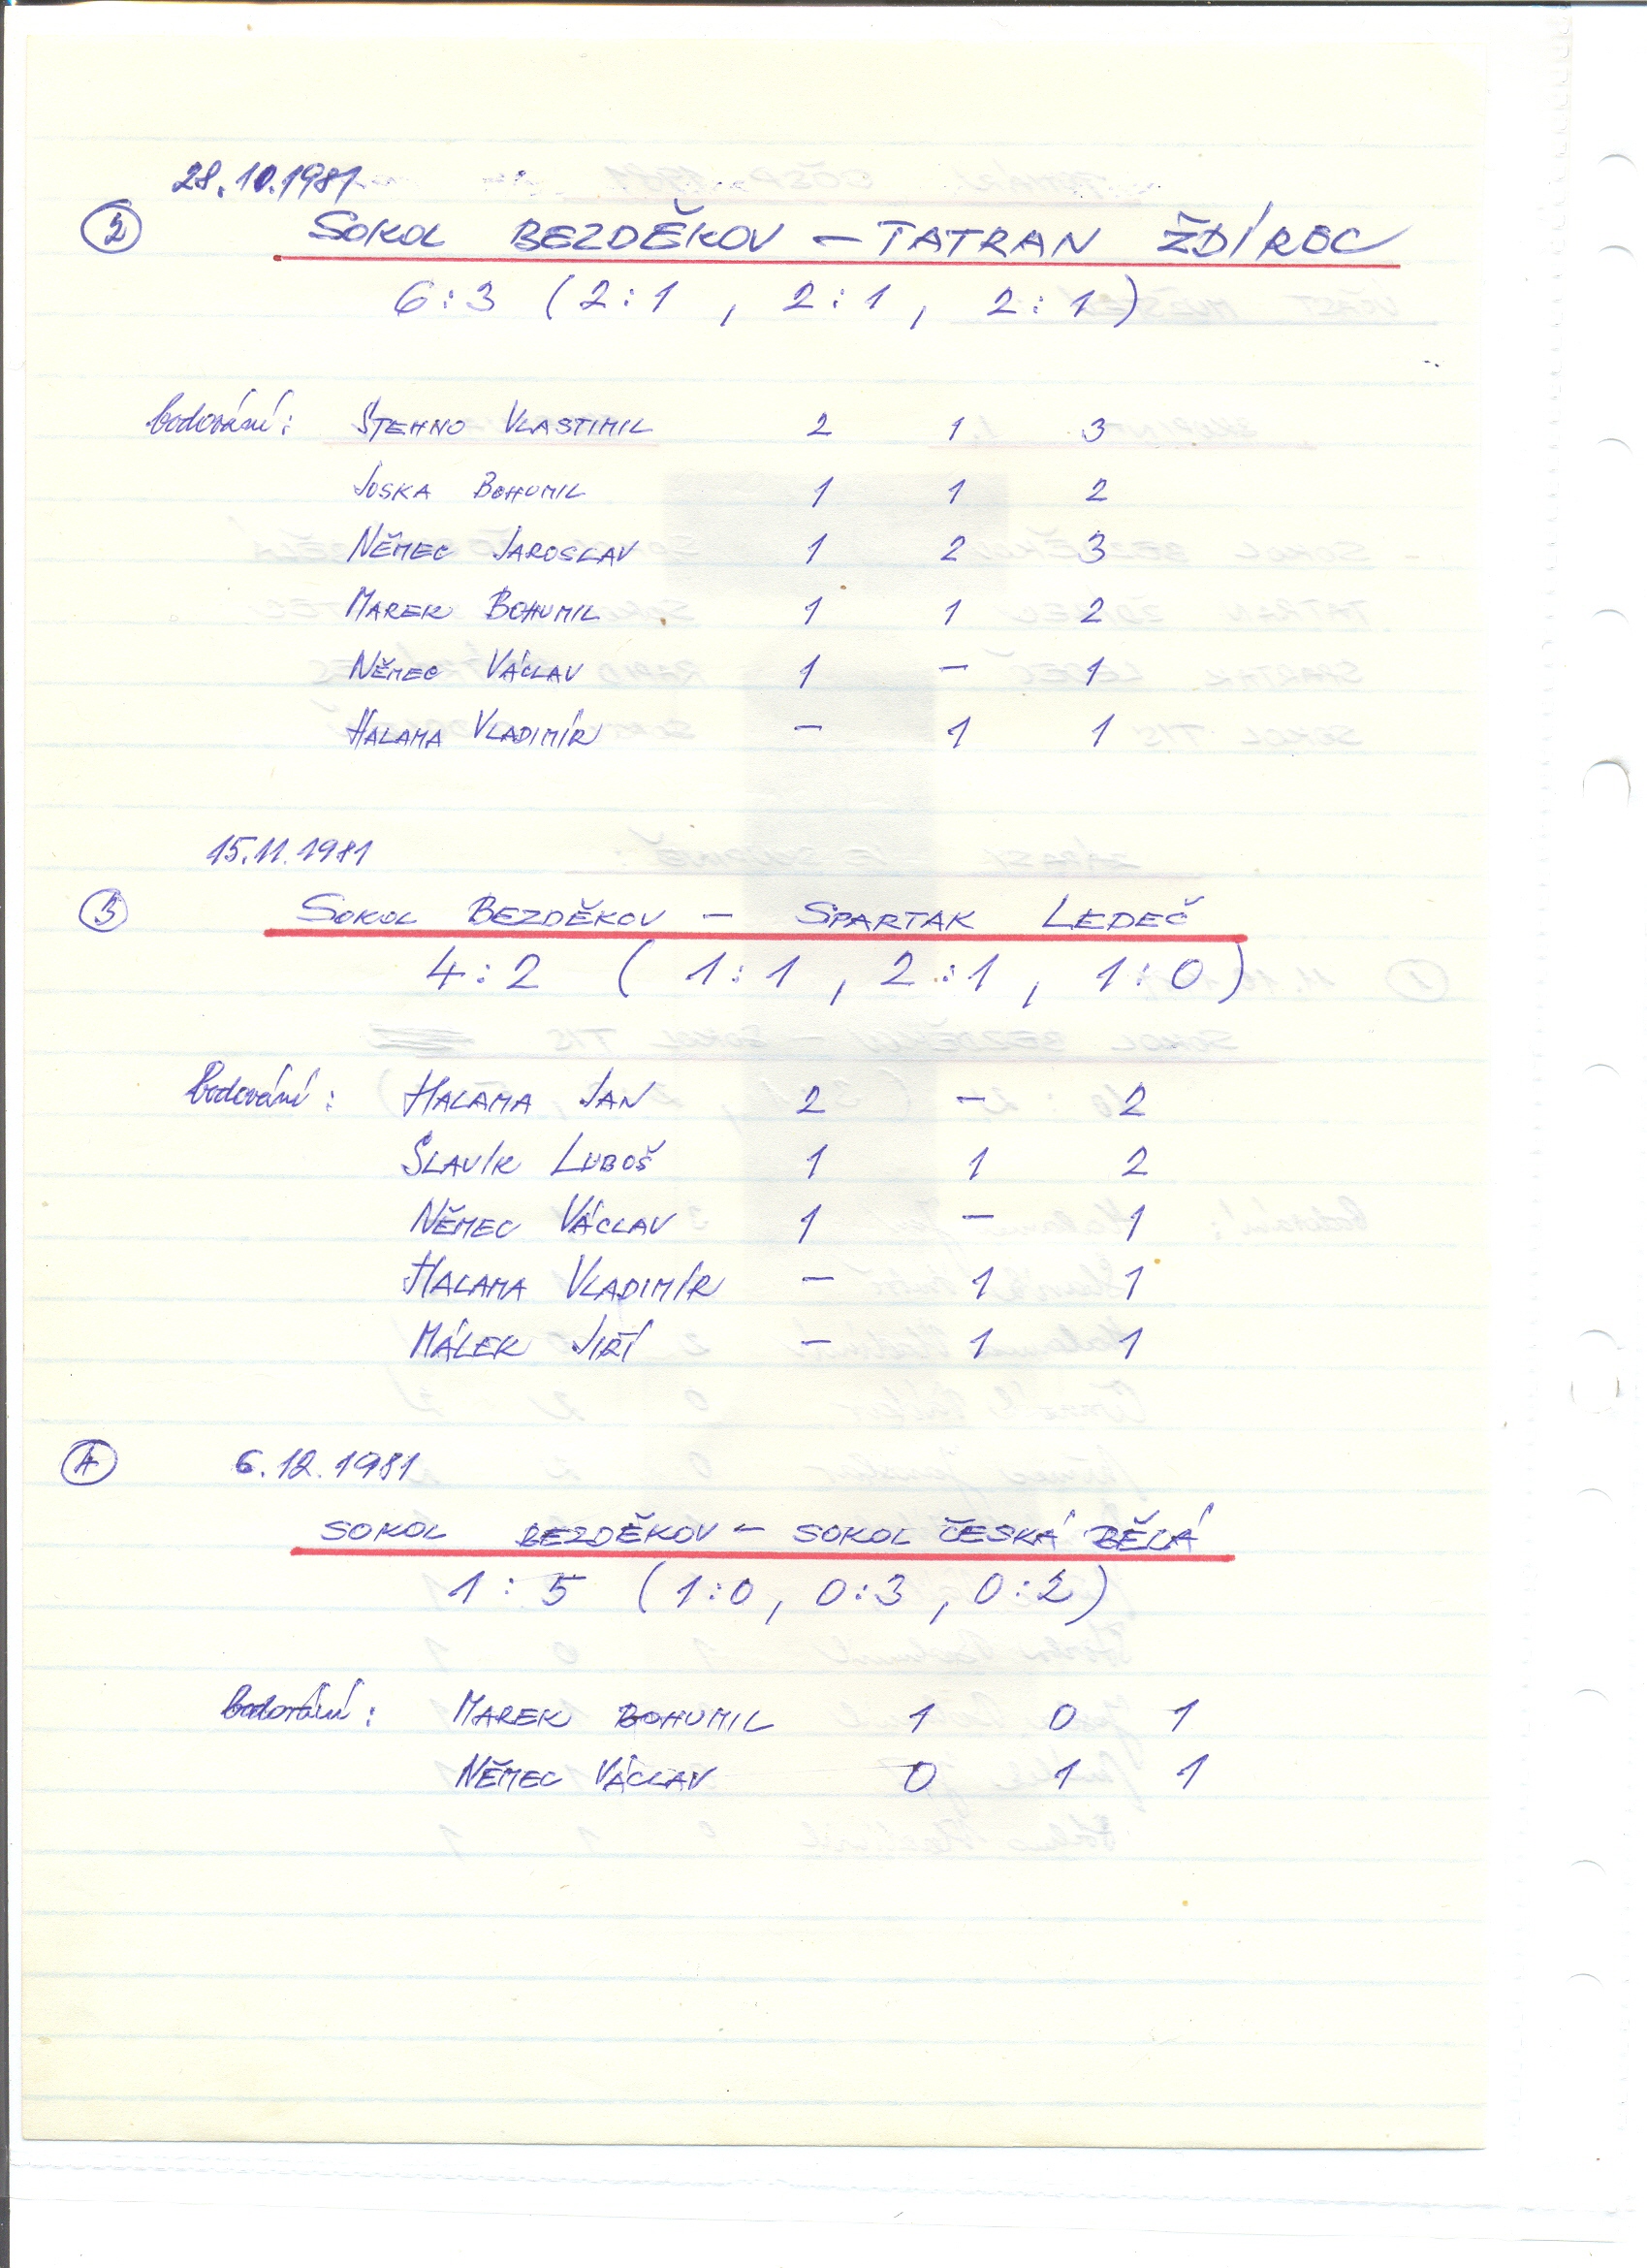 28.10.1981
2 SOKOL BEZDĚKOV – TATRAN ŽDÍREC
6:3 (2:1, 2:1, 2:1)
bodování: ŠTEHNO VLASTIMIL 2 1 3
JOSKA BOHUMIL 1 1 2
NĚMEC JAROSLAV 1 2 3
MAREK BOHUMIL 1 1 2
NĚMEC VÁCLAV 1 – 1
HALAMA VLADIMÍR – 1 1
15.11.1981
3 SOKOL BEZDĚKOV – SPARTAK LEDEČ
4:2 (1:1, 2:1, 1:0)
bodování: HALAMA JAN 2 – 2
SLAVÍK LUBOŠ 1 1 2
NĚMEC VÁCLAV 1 – 1
HALAMA VLADIMÍR – 1 1
MÁLEK JIŘÍ – 1 1
4 6.12.1981
SOKOL BEZDĚKOV – SOKOL ČESKÁ BĚLÁ
1:5 (1:0, 0:3, 0:2)
bodování: MAREK BOHUMIL 1 0 1
NĚMEC VÁCLAV 0 1 1